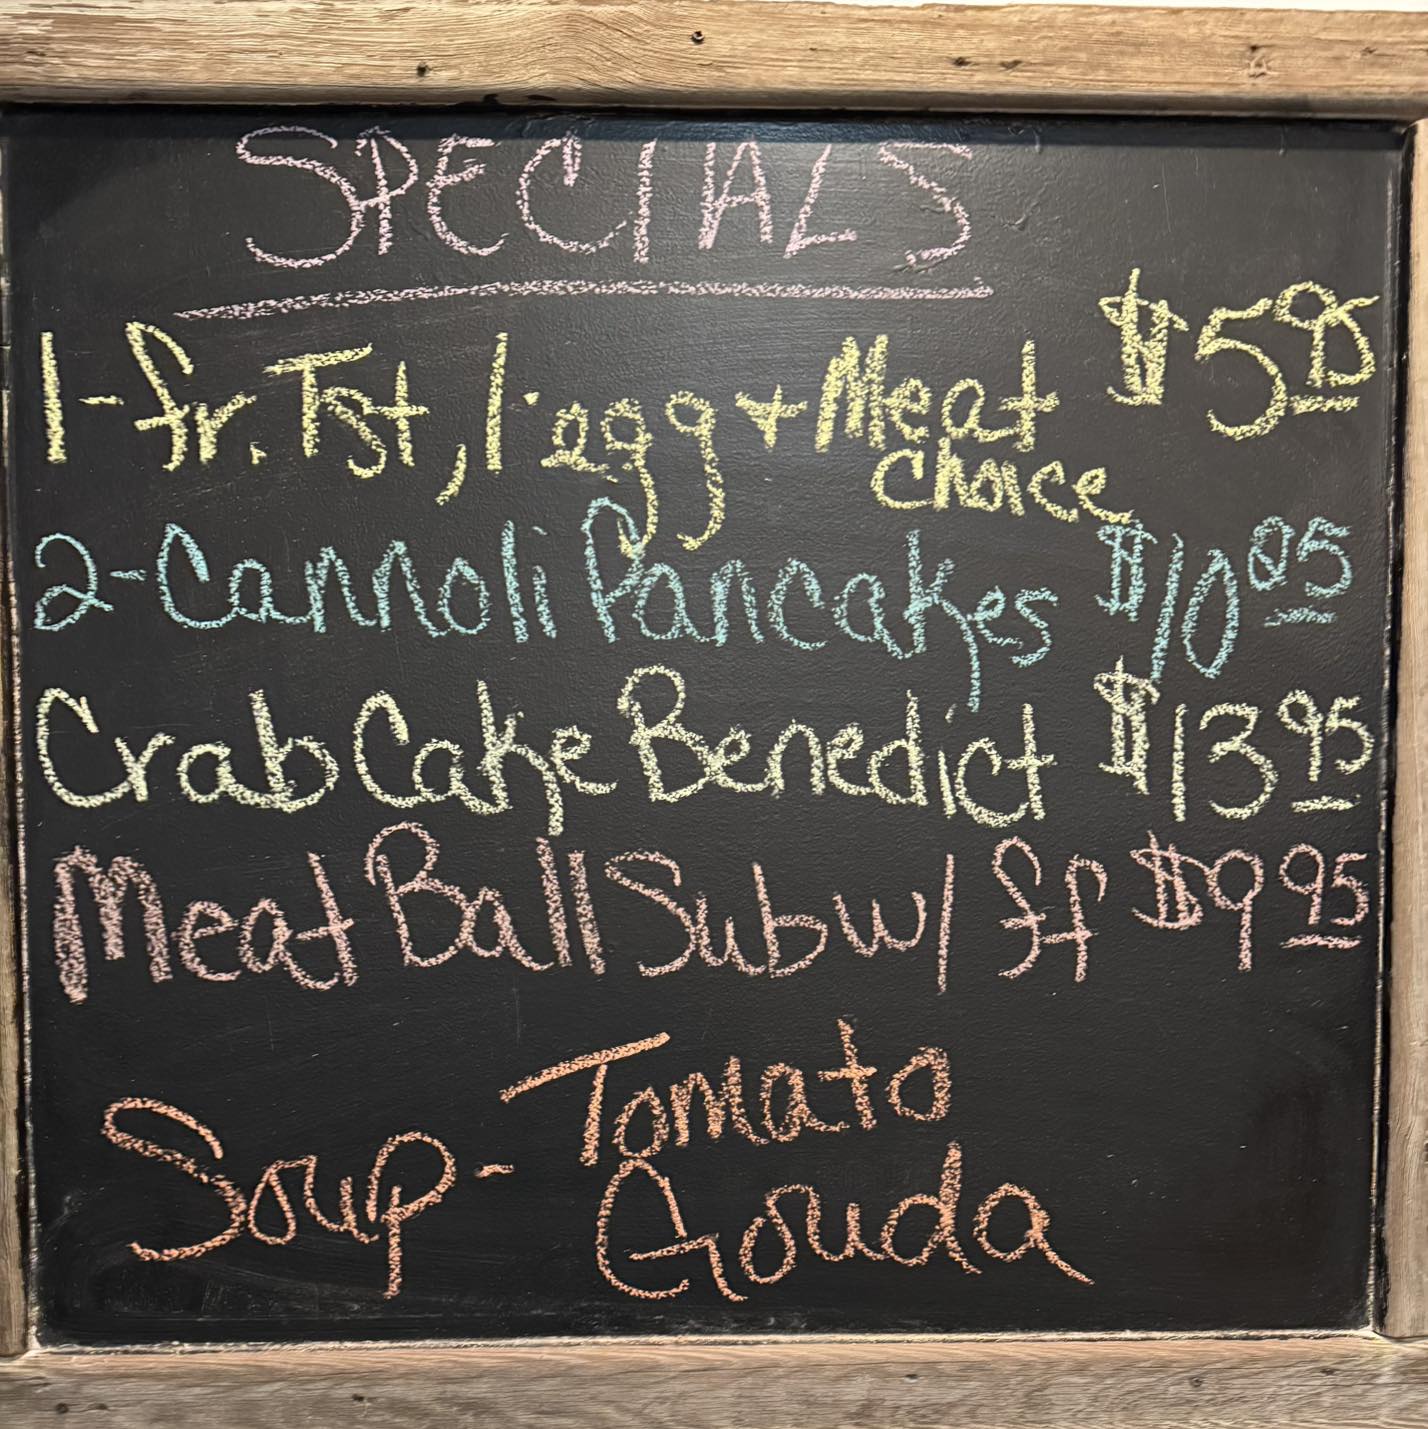 SPECIALS
1-fr. Tst, 1 egg + Meat $5 95
Choice
2-Cannoli Pancakes $10 25
Crab Cake Benedict $13 95
Meat Ball Sub w/ ff $9 95
Soup - Tomato
Gouda